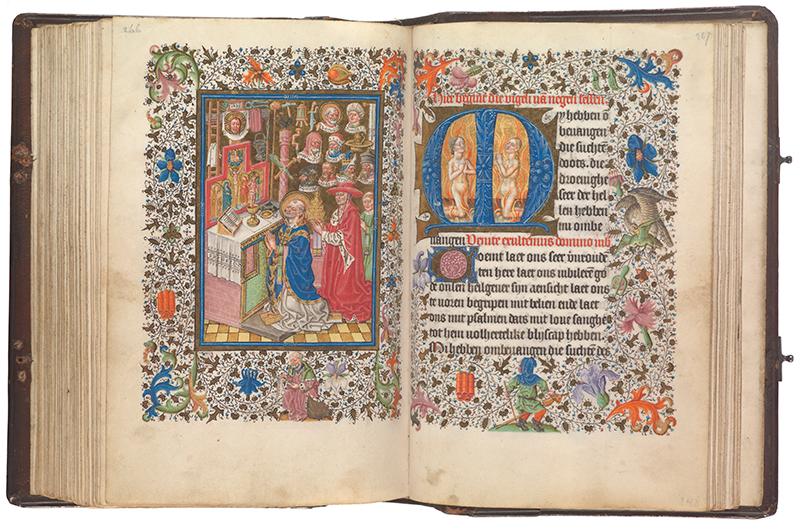 266
267
Hier begint die vigeli vā negen lessen
My hebben ō
bevangen
die suchtē
doots. die
droevighe
seer der hel
len hebben
mi ombe
vangen Venite exultemus domino iub
Coemt laet ons seer v̄roude
ten here laet ons iubileren
de onsen heilgever syn aensicht laet ons
te voren begripen mit belien ende laet
ons mit psalmien dats mit love sanghe
tot hem volhertelike blyscap hebben
Mi hebben ombevangen die suchtē des